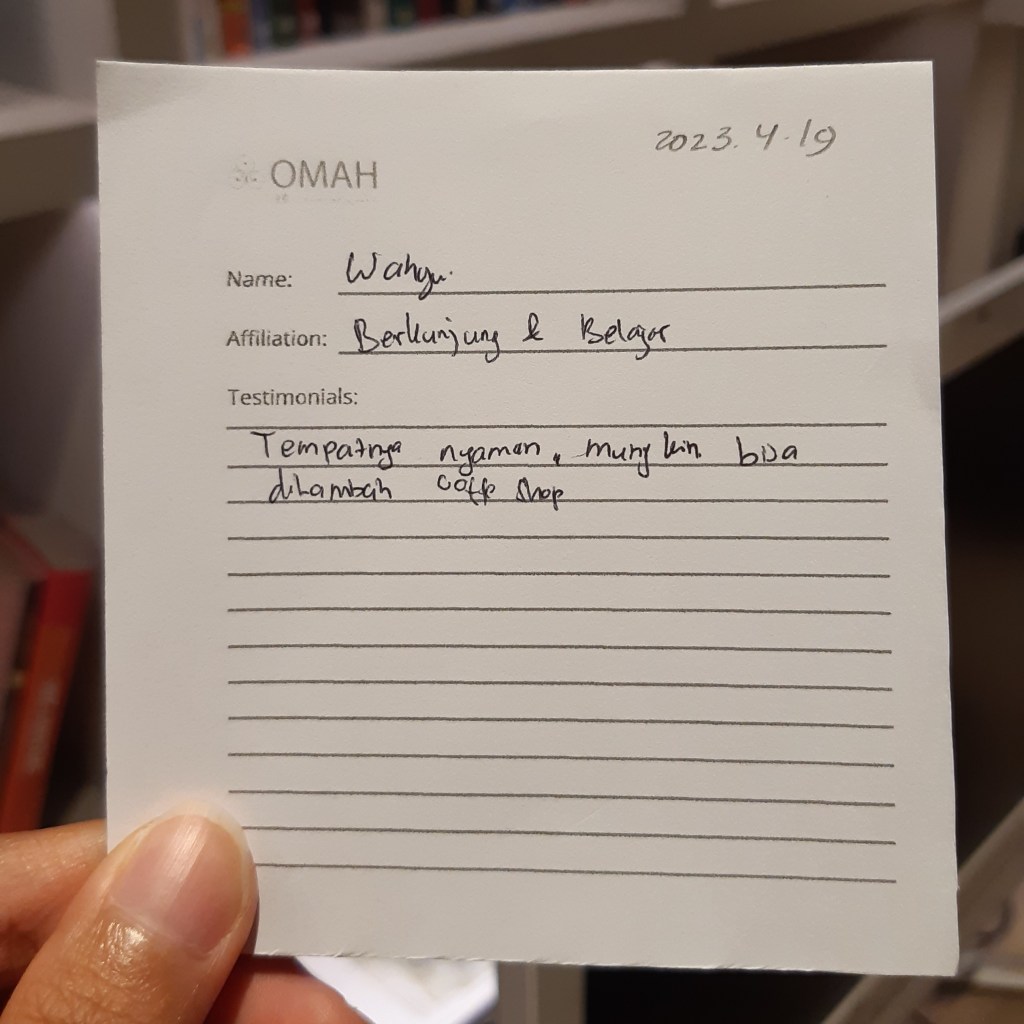 2023.4.19
OMAH
Name: Wahyu.
Affiliation: Berkunjung & Belajar
Testimonials:
Tempatnya nyaman, mungkin bisa
ditambah coffe shop